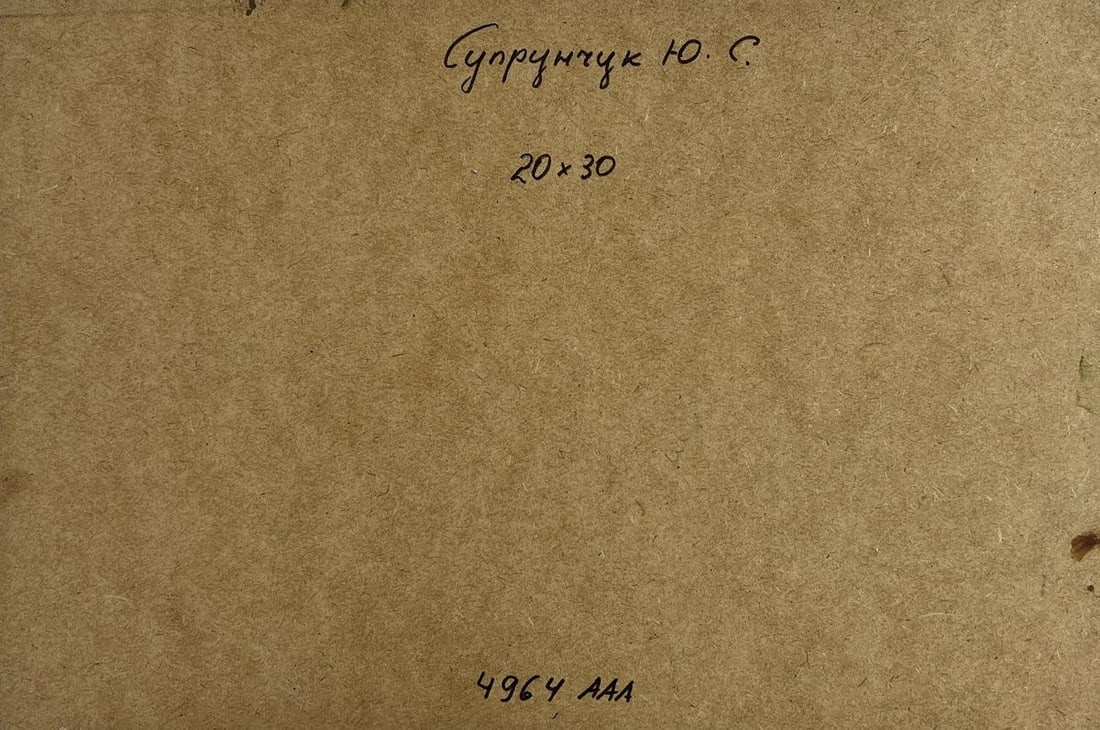 Супрунчук Ю. С.
20 x 30
4964 AAA